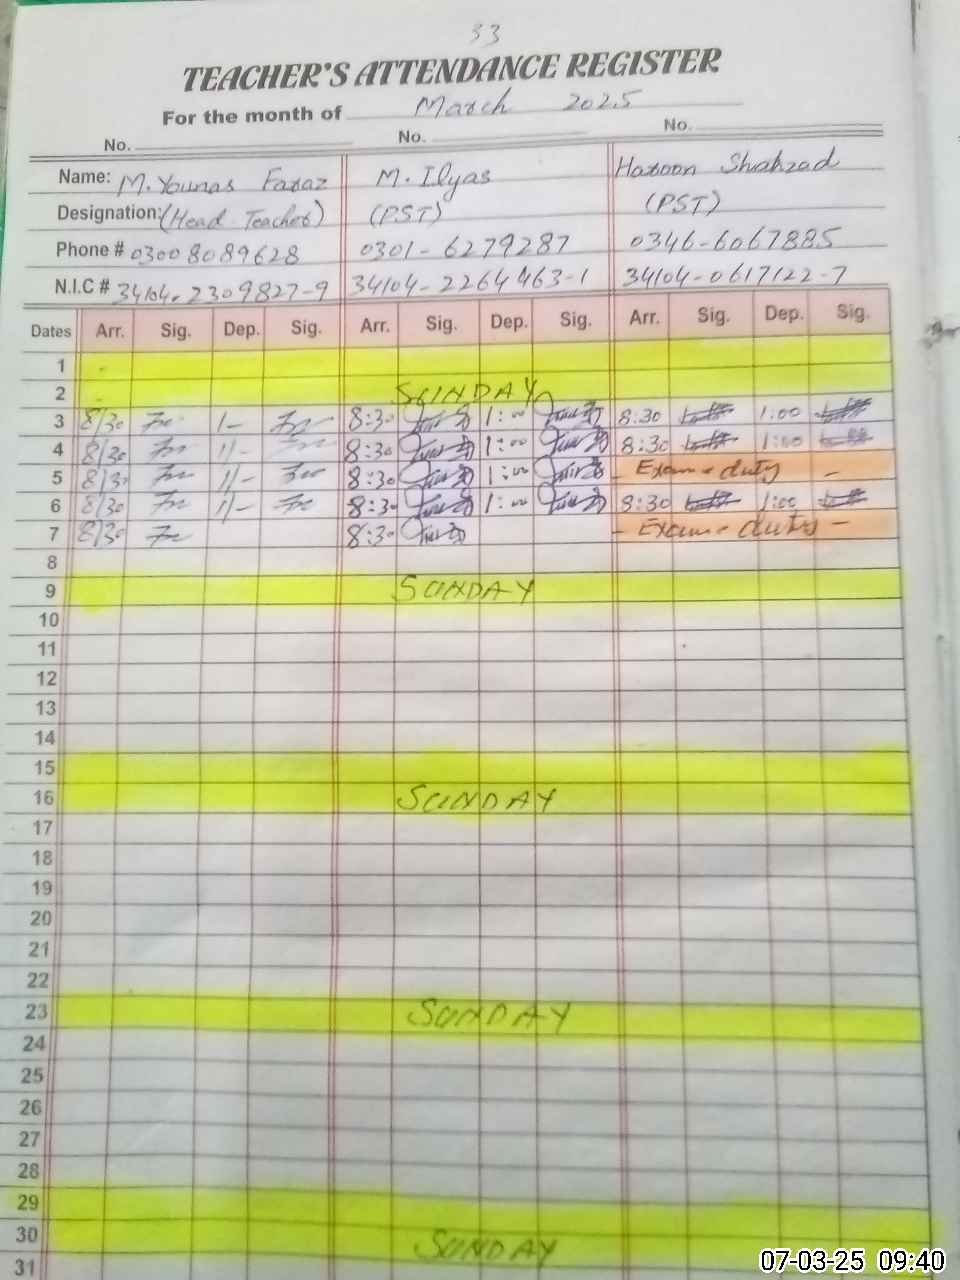 33
TEACHER'S ATTENDANCE REGISTER
For the month of March 2025
No. No. No.
Name: M. Younas Faraz M. Ilyas Haroon Shahzad
Designation: (Head Teacher) (PST) (PST)
Phone # 03008089628 0301-6279287 0346-6067885
N.I.C # 34104-2309827-9 34104-2264463-1 34104-0617122-7
Dates Arr. Sig. Dep. Sig. Arr. Sig. Dep. Sig. Arr. Sig. Dep. Sig.
1
2 SUNDAY
3 8/30 1/- 8:30 1:00 8:30 1:00
4 8/30 1/- 8:30 1:00 8:30 1:00
5 8/30 1/- 8:30 1:00 - Exam duty -
6 8/30 1/- 8:30 1:00 8:30 1:00
7 8/30 8:30 - Exam duty -
8
9 SUNDAY
10
11
12
13
14
15
16 SUNDAY
17
18
19
20
21
22
23 SUNDAY
24
25
26
27
28
29
30 SUNDAY
31
07-03-25 09:40